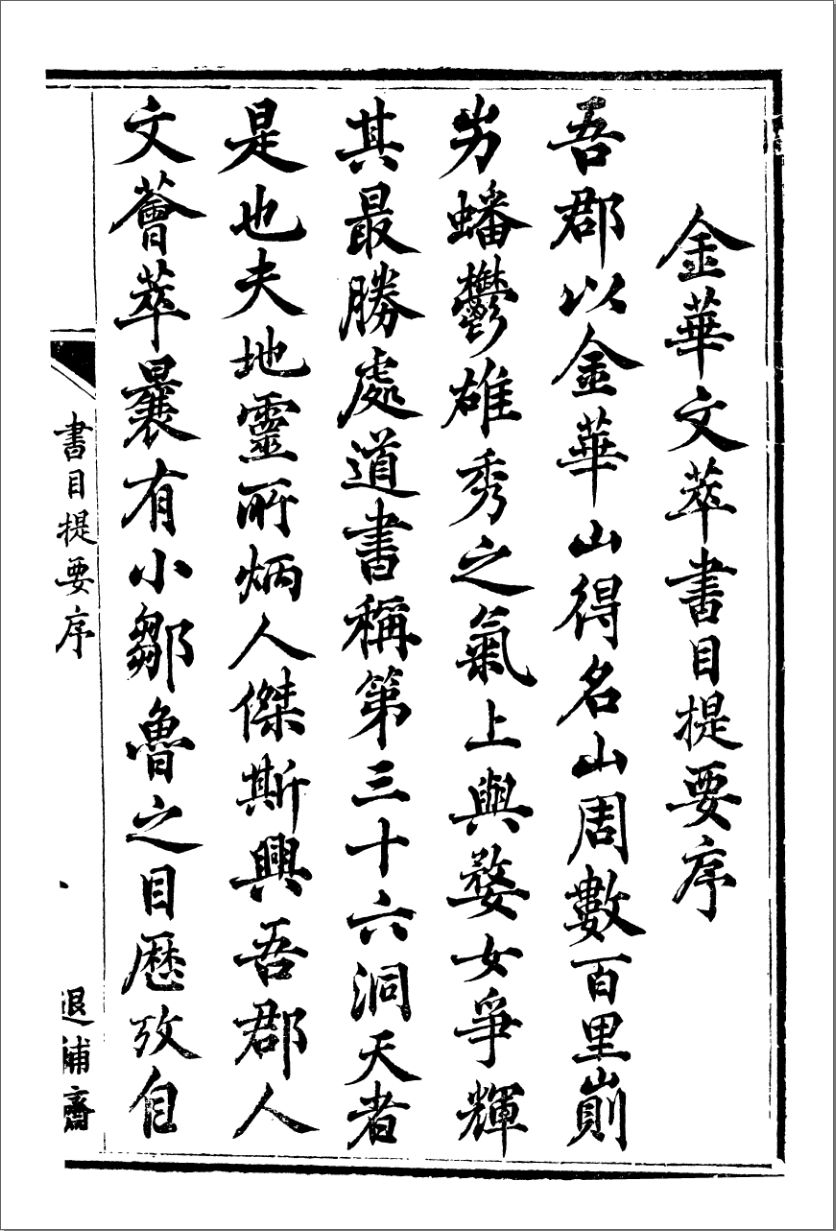 金華文萃書目提要序
吾郡以金華山得名山周數百里崱
屴蟠鬱雄秀之氣上與婺女爭輝
其最勝處道書稱第三十六洞天者
是也夫地靈所炳人傑斯興吾郡人
文薈萃曩有小鄒魯之目歷攷自
書目提要序
退補齋